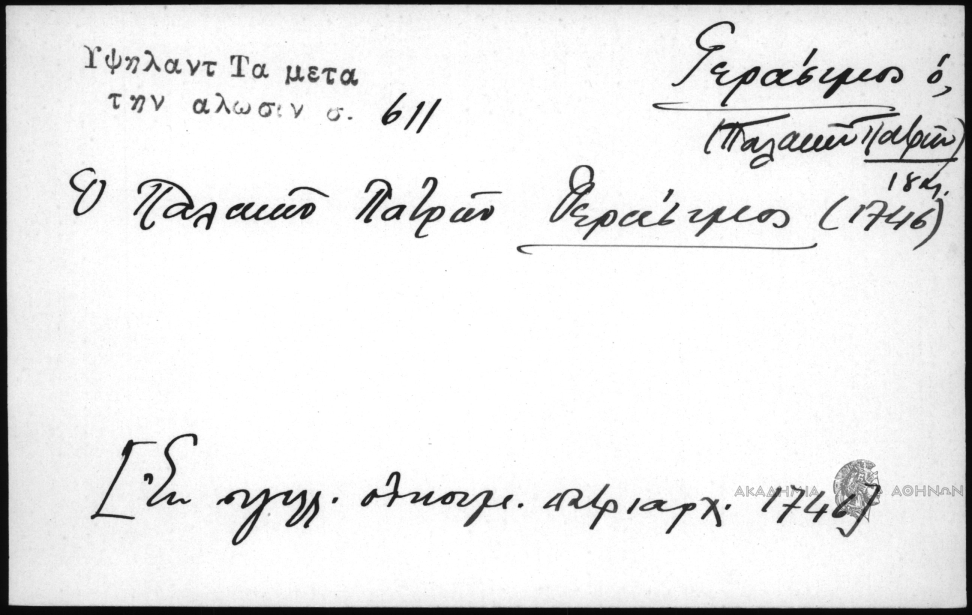 Υψηλαντ Τα μετα
την αλωσιν σ. 611
Γεράσιμος ὁ,
(Παλαιῶν Πατρῶν)
18 αἰ.
Ὁ Παλαιῶν Πατρῶν Γεράσιμος (1746)
[Ἐκ σιγιλλ. οἰκουμ. πατριαρχ. 1746]
ΑΚΑΔΗΜΙΑ ΑΘΗΝΩΝ